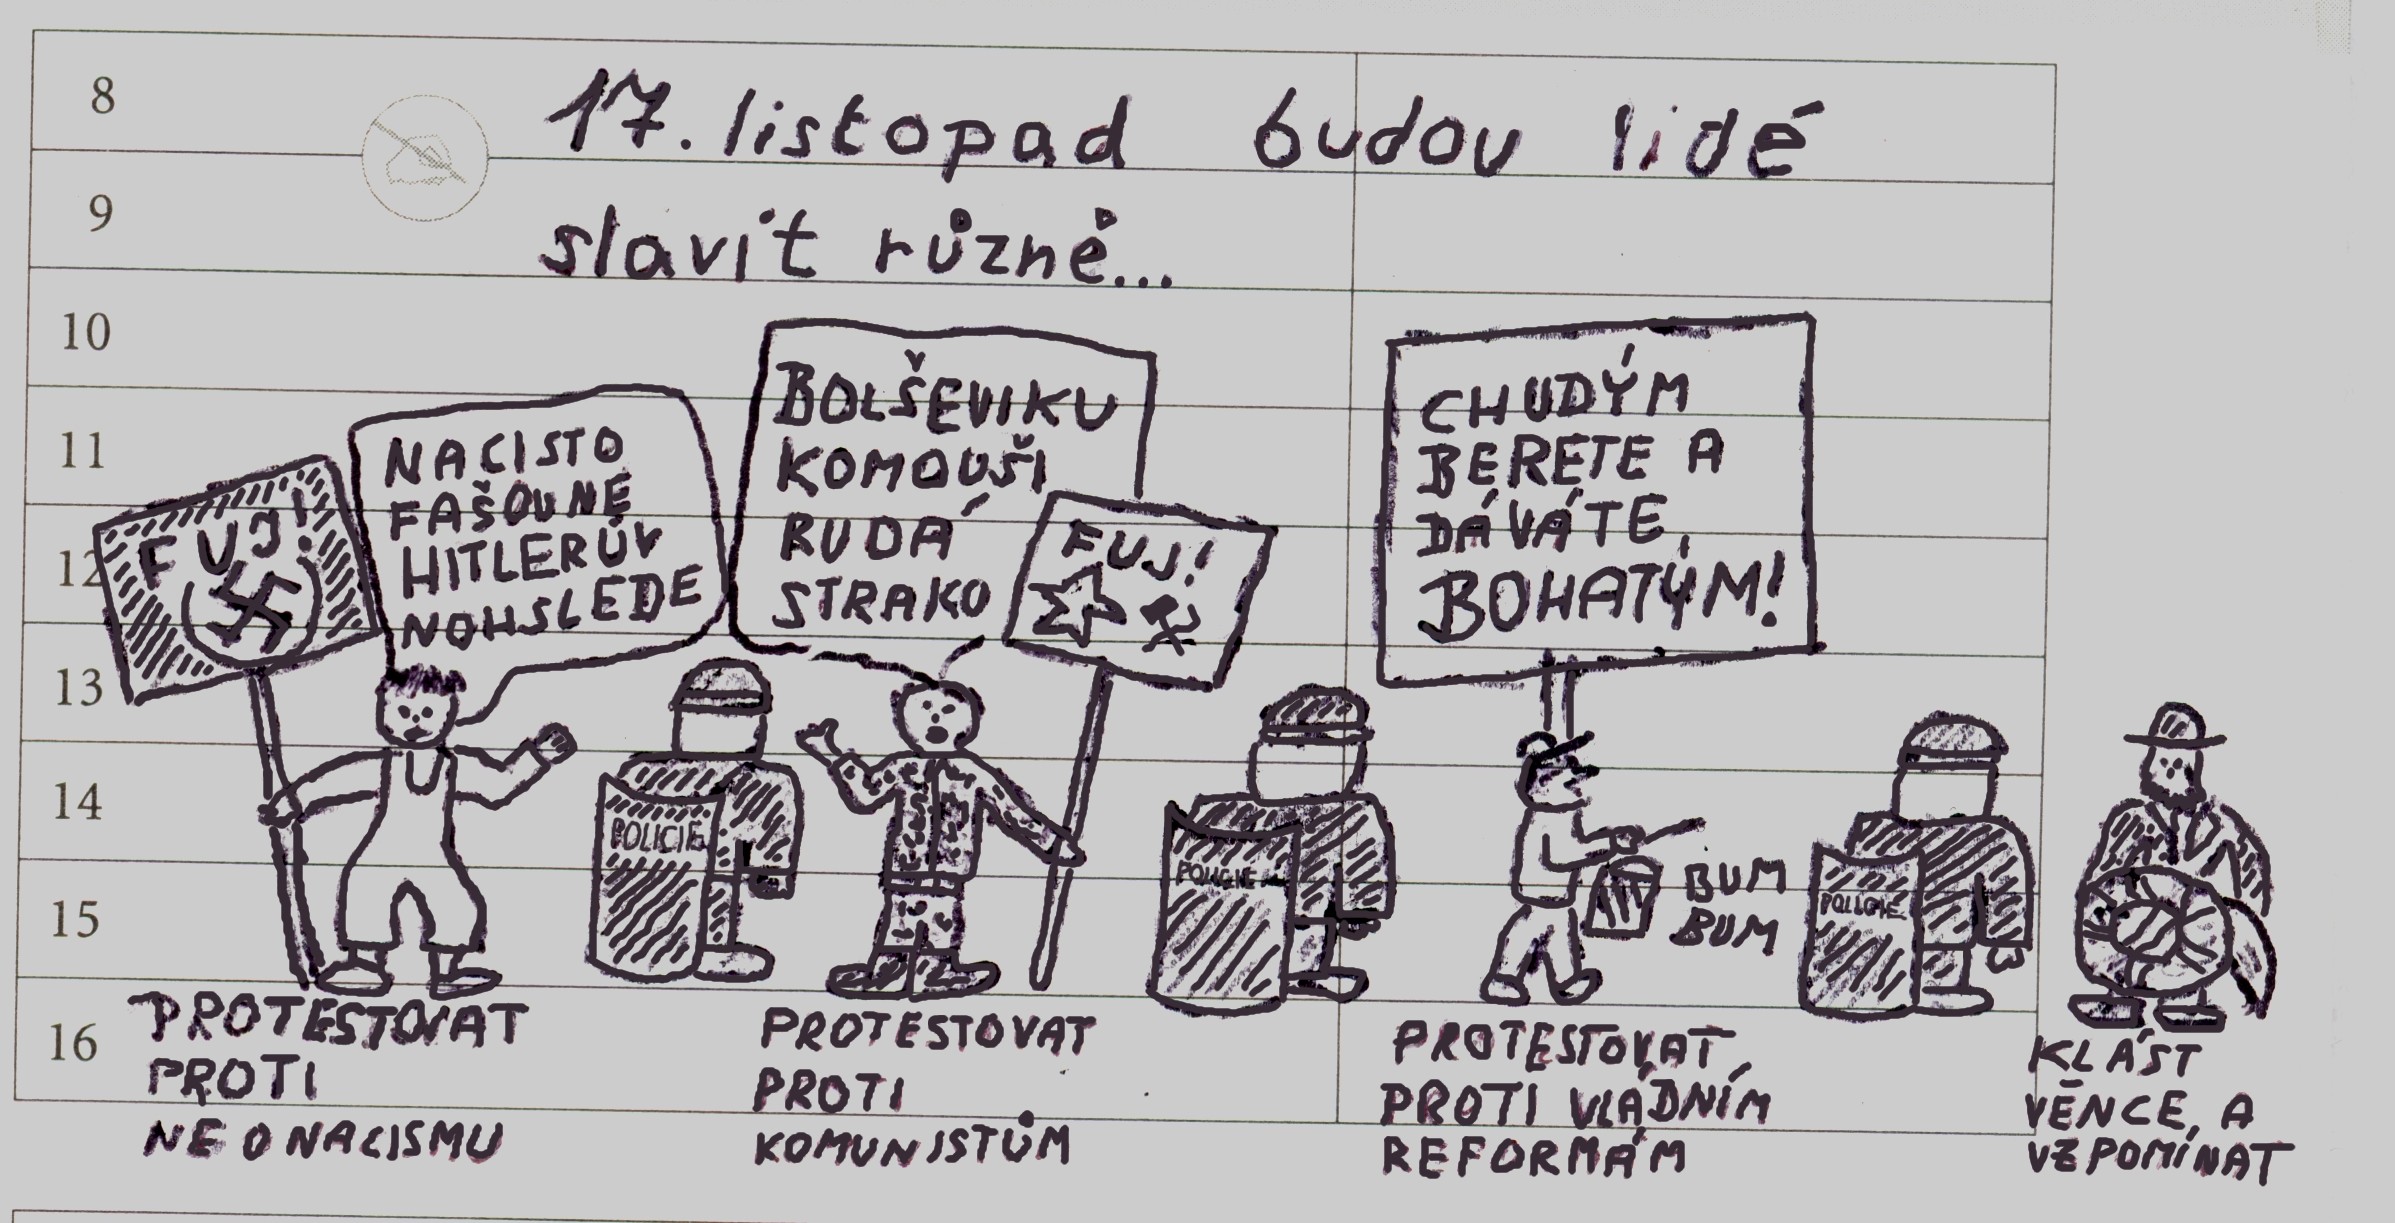 8
17. listopad budou lidé
9
slavit různě...
10
11
12
13
14
15
16
FUJ!
NACISTO
FAŠOUNE
HITLERŮV
NOHSLEDE
BOLŠEVIKU
KOMOUŠI
RUDÁ
STRAKO
FUJ!
CHUDÝM
BERETE A
DÁVÁTE,
BOHATÝM!
POLICIE
POLICIE
BUM
BUM
POLICIE
PROTESTOVAT
PROTI
NEONACISMU
PROTESTOVAT
PROTI
KOMUNISTŮM
PROTESTOVAT
PROTI VLÁDNÍM
REFORMÁM
KLÁST
VĚNCE, A
VZPOMÍNAT